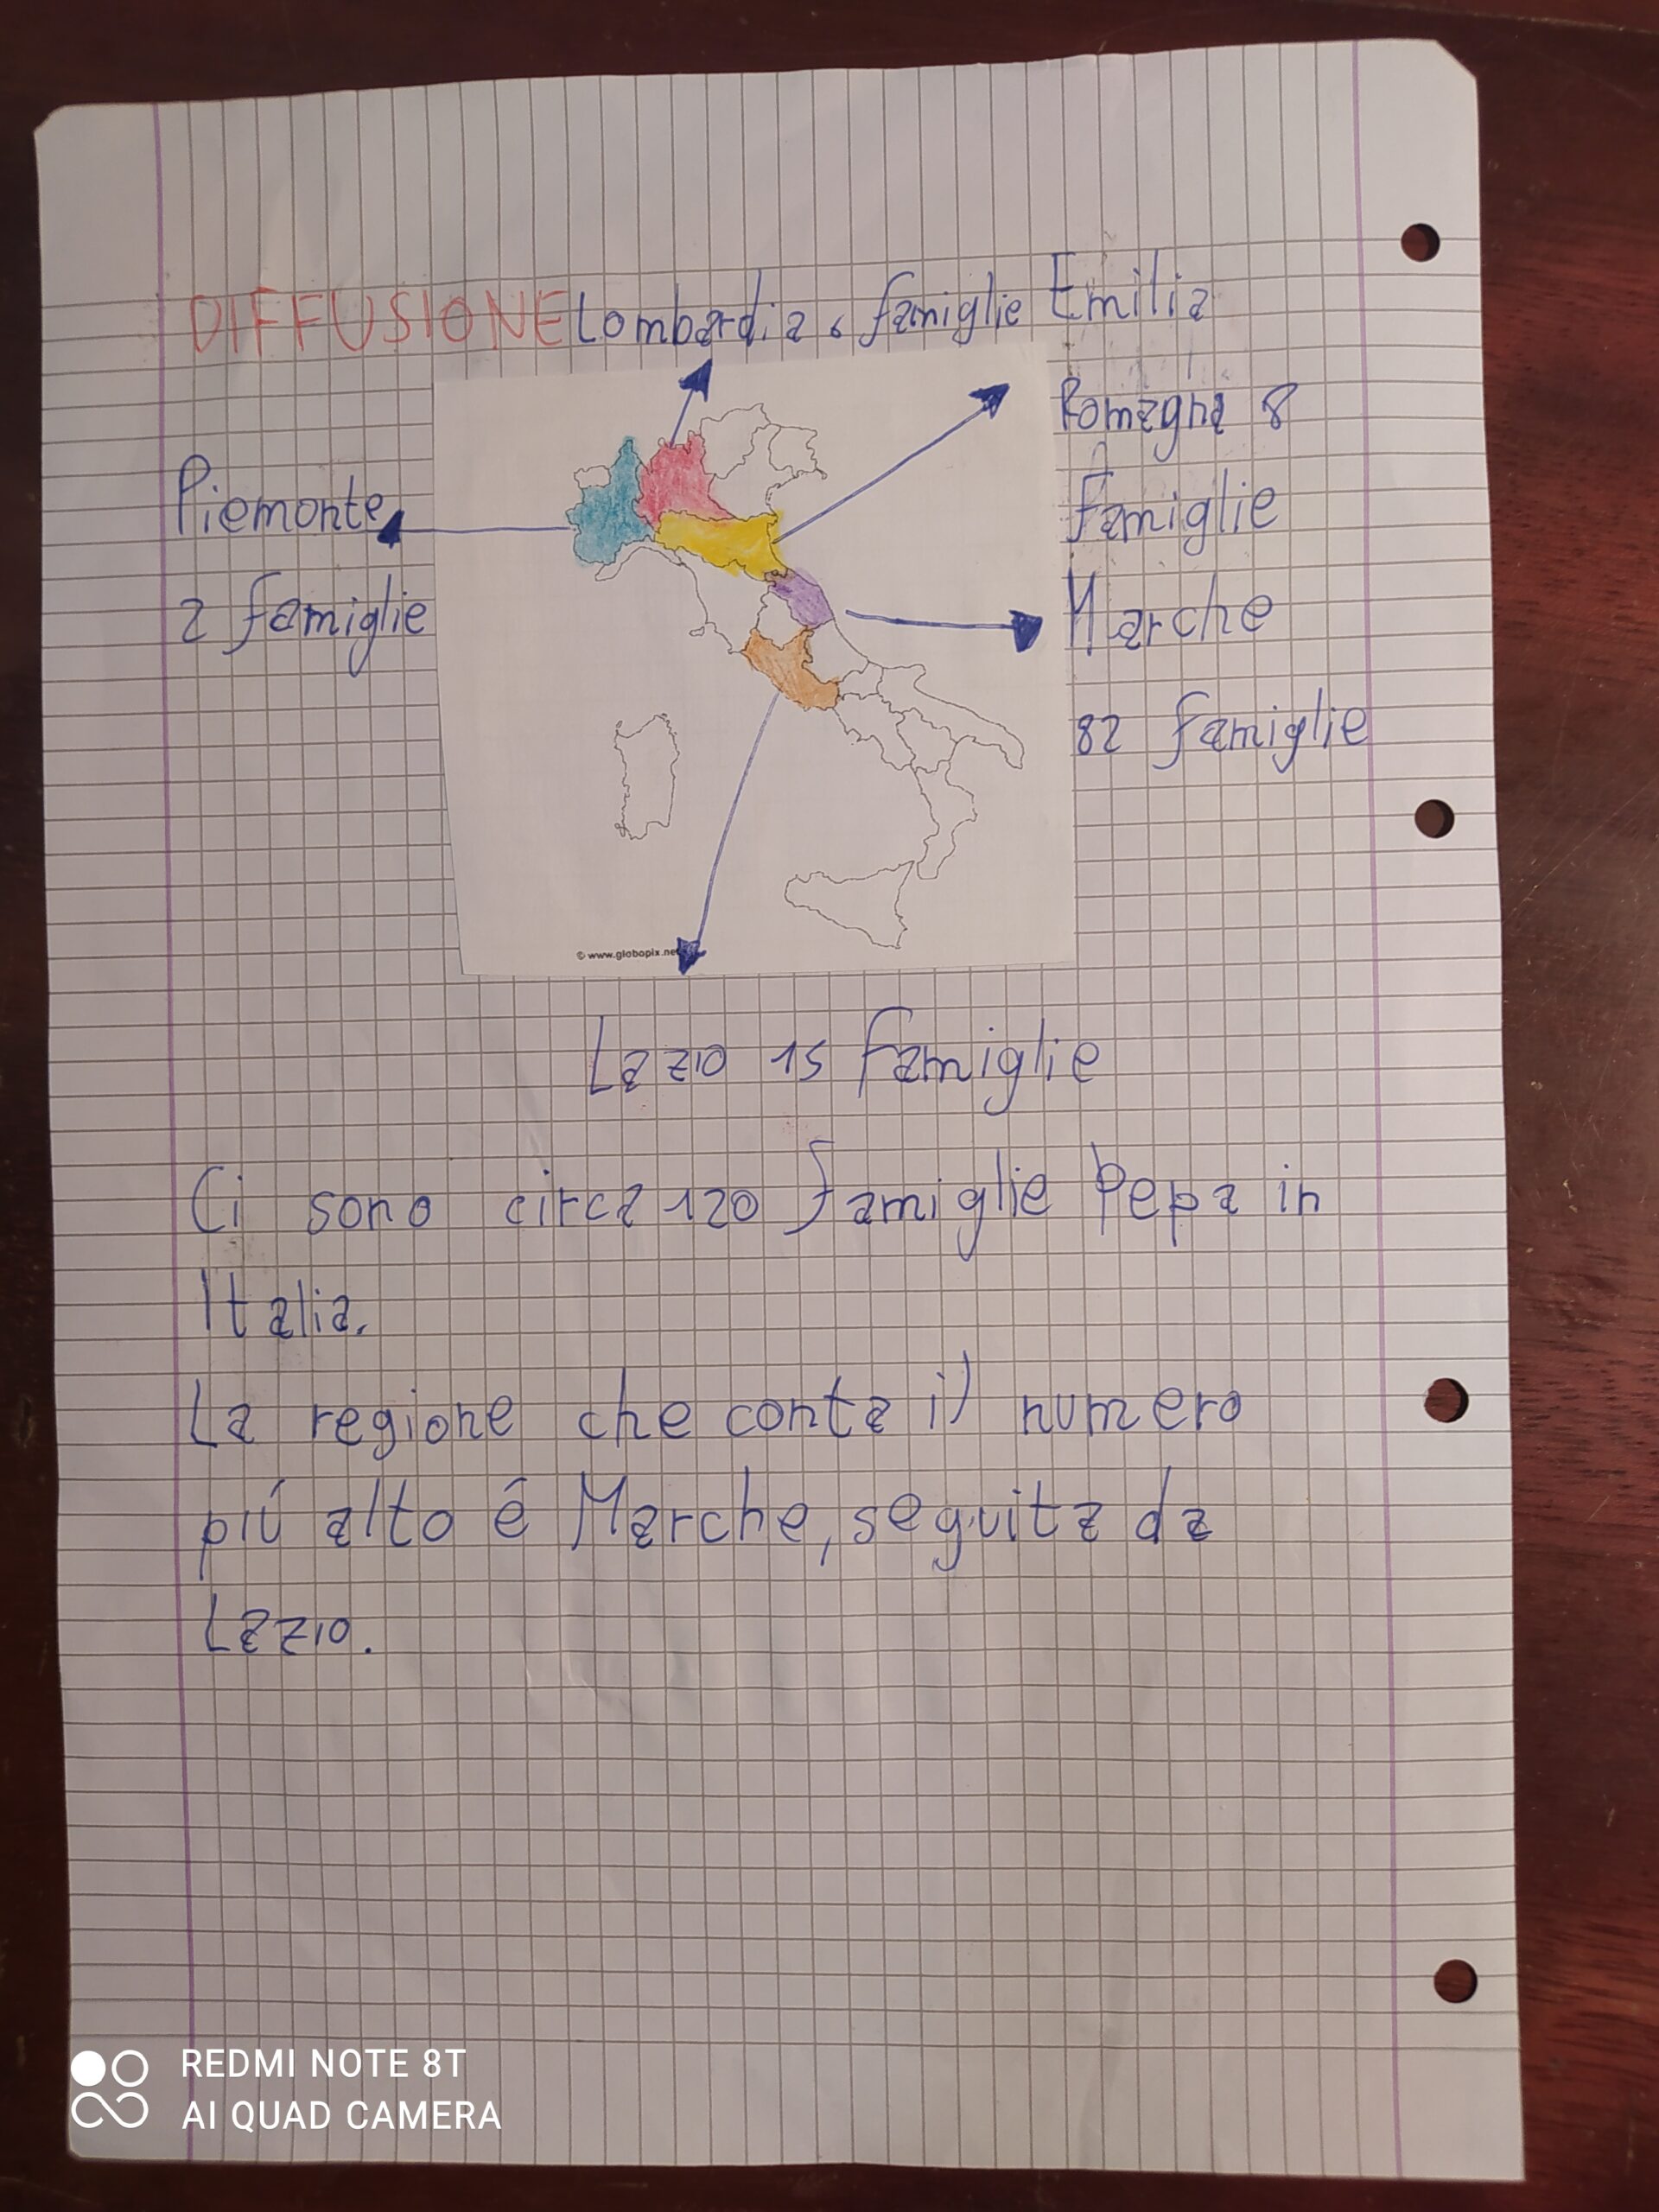 DIFFUSIONE Lombardia 6 famiglie Emilia
Romagna 8
famiglie
Piemonte
2 famiglie
Marche
82 famiglie
© www.globopix.net
Lazio 15 famiglie
Ci sono circa 120 famiglie Pepa in
Italia.
La regione che conta il numero
piú alto é Marche, seguita da
Lazio.
REDMI NOTE 8T
AI QUAD CAMERA